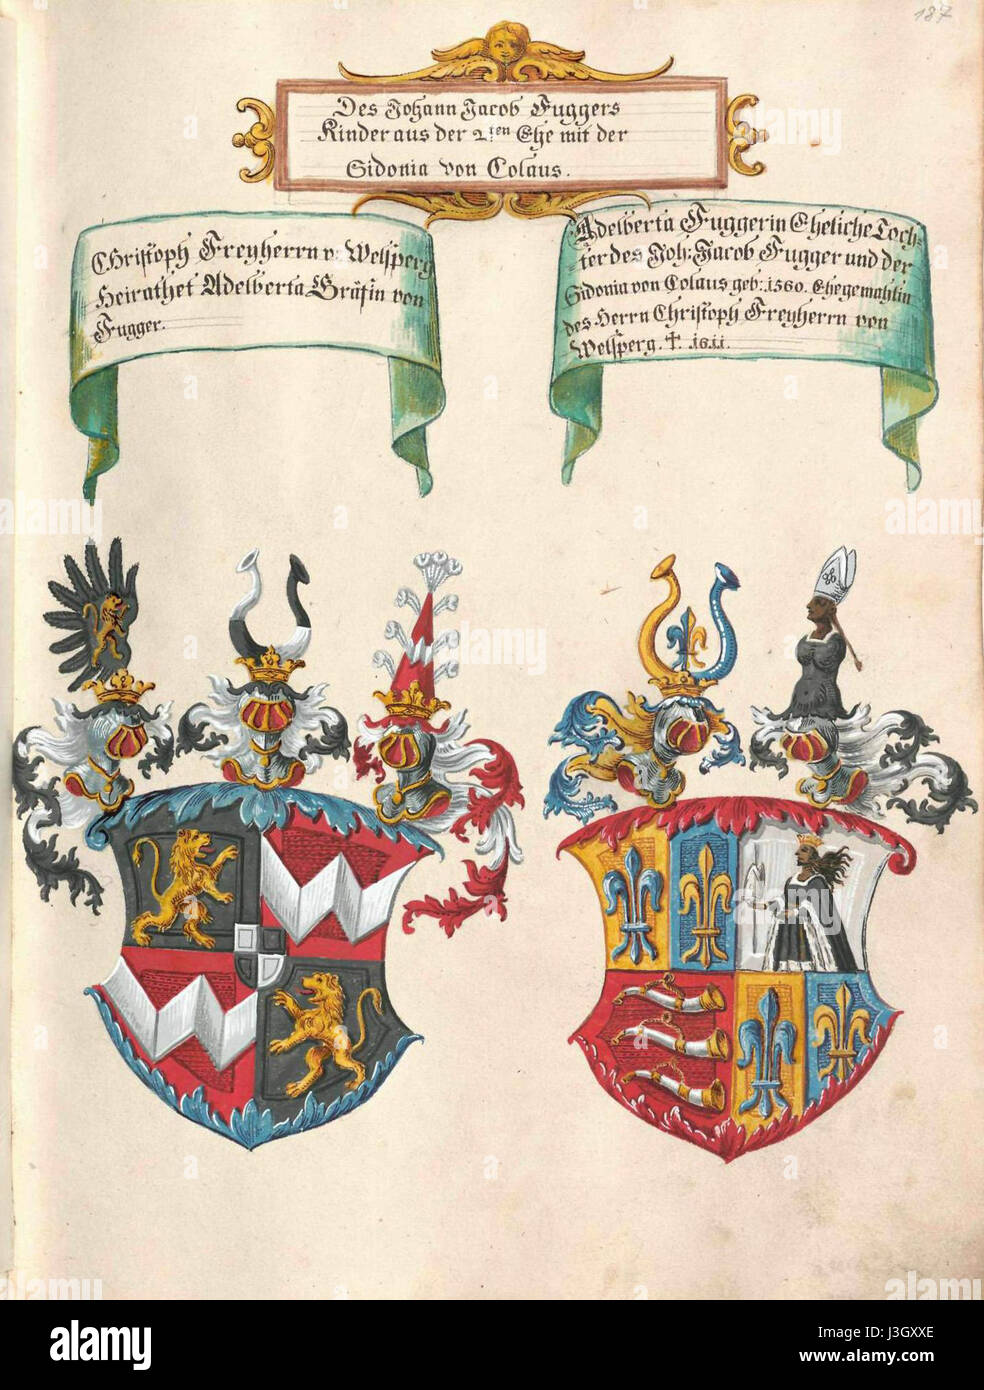 187
Des Johann Jacob Fuggers
Kinder aus der 2ten Ehe mit der
Sidonia von Colaus.
Christoph Freyherrn v: Welsperg
Heirathet Adelberta Gräfin von
Fugger.
Adelberta Fuggerin Eheliche Toch=
ter des Joh: Jacob Fugger und der
Sidonia von Colaus geb: 1560. Ehegemahlin
des Herrn Christoph Freyherrn von
Welsperg. † 1611.
alamy
alamy stock photo
Image ID: J3GXXE
www.alamy.com